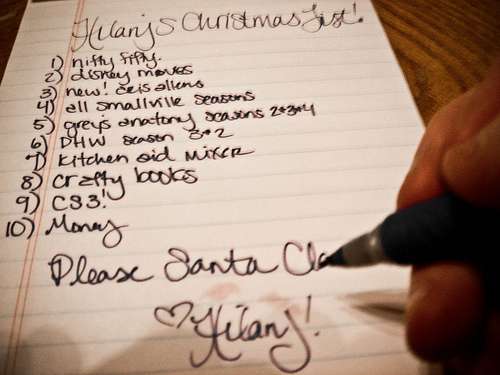 Hilary's Christmas List!
1) nifty fifty.
2) disney movies
3) new! cris allens
4) all smallville seasons
5) grey's anatomy seasons 2+3+4
6) DHW season 3+2
7) kitchen aid mixer
8) crafty books
9) CS3!
10) Money
Please Santa Cla
♡Hilary!